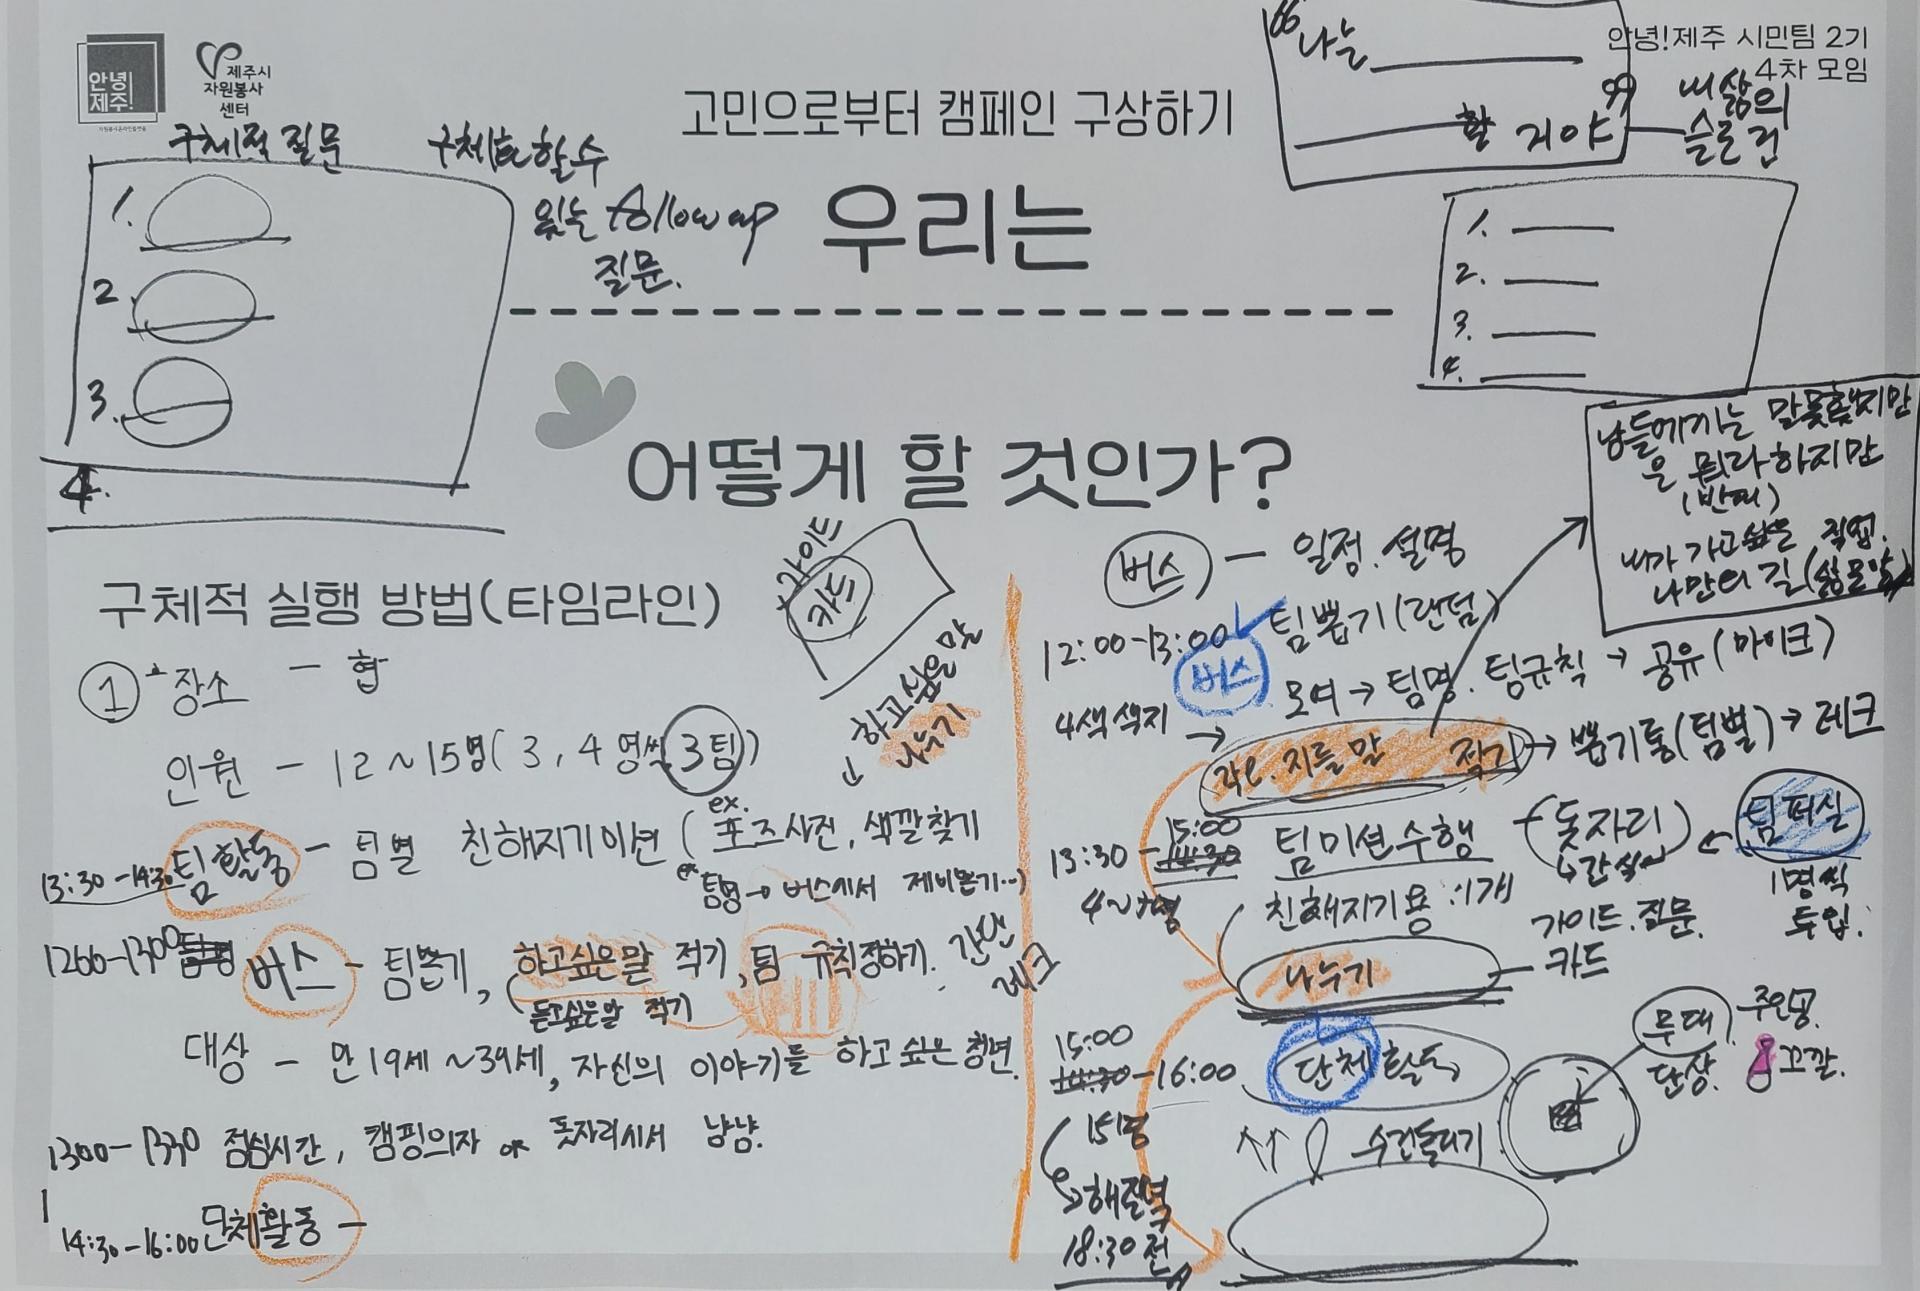 안녕
제주!
제주시
자원봉사
센터
안녕!제주 시민팀 2기
4차 모임
고민으로부터 캠페인 구상하기
우리는
어떻게 할 것인가?
구체적 질문
1.
2.
3.
4.
구체화 할 수
있는 follow up
질문.
"나는
할 거야"
내 삶의
슬로건
1.
2.
3.
4.
남들에게는 말 못했지만
은 뭐라하지만
(반대)
내가 가고싶은 직업.
나만의 길
구체적 실행 방법(타임라인)
가이드
카드
하고싶은 말
하고싶은
나누기
① 장소 - 협
인원 - 12~15명(3, 4명씩 3팀)
13:30-14:30 팀 활동 - 팀별 친해지기 미션 (ex. 포즈사진, 색깔찾기
ex. 팀명 → 버스에서 제비뽑기...)
1200-1300 버스 - 팀뽑기, 하고싶은말 적기, 팀 규칙정하기. 간단
레크
듣고싶은말 적기
대상 - 만 19세~39세, 자신의 이야기를 하고 싶은 청년.
1300-1330 점심시간, 캠핑의자 or 돗자리에서 냠냠.
14:30-16:00 단체활동 -
버스 - 일정.설명
12:00-13:00 팀뽑기(랜덤)
버스
모여 → 팀명. 팀규칙 → 공유(마이크)
4색 색지 →
지를 말 적기 → 뽑기통(팀별) → 레크
13:30 - 15:00
14:30
팀미션수행
돗자리
간식
팀 퍼실
1명씩
투입.
친해지기용:1개
나누기
가이드.질문.
카드
15:00
14:30-16:00 단체활동
무대
단상.
주인공.
꼬깔.
15명
수건돌리기
해질녘
18:30 전